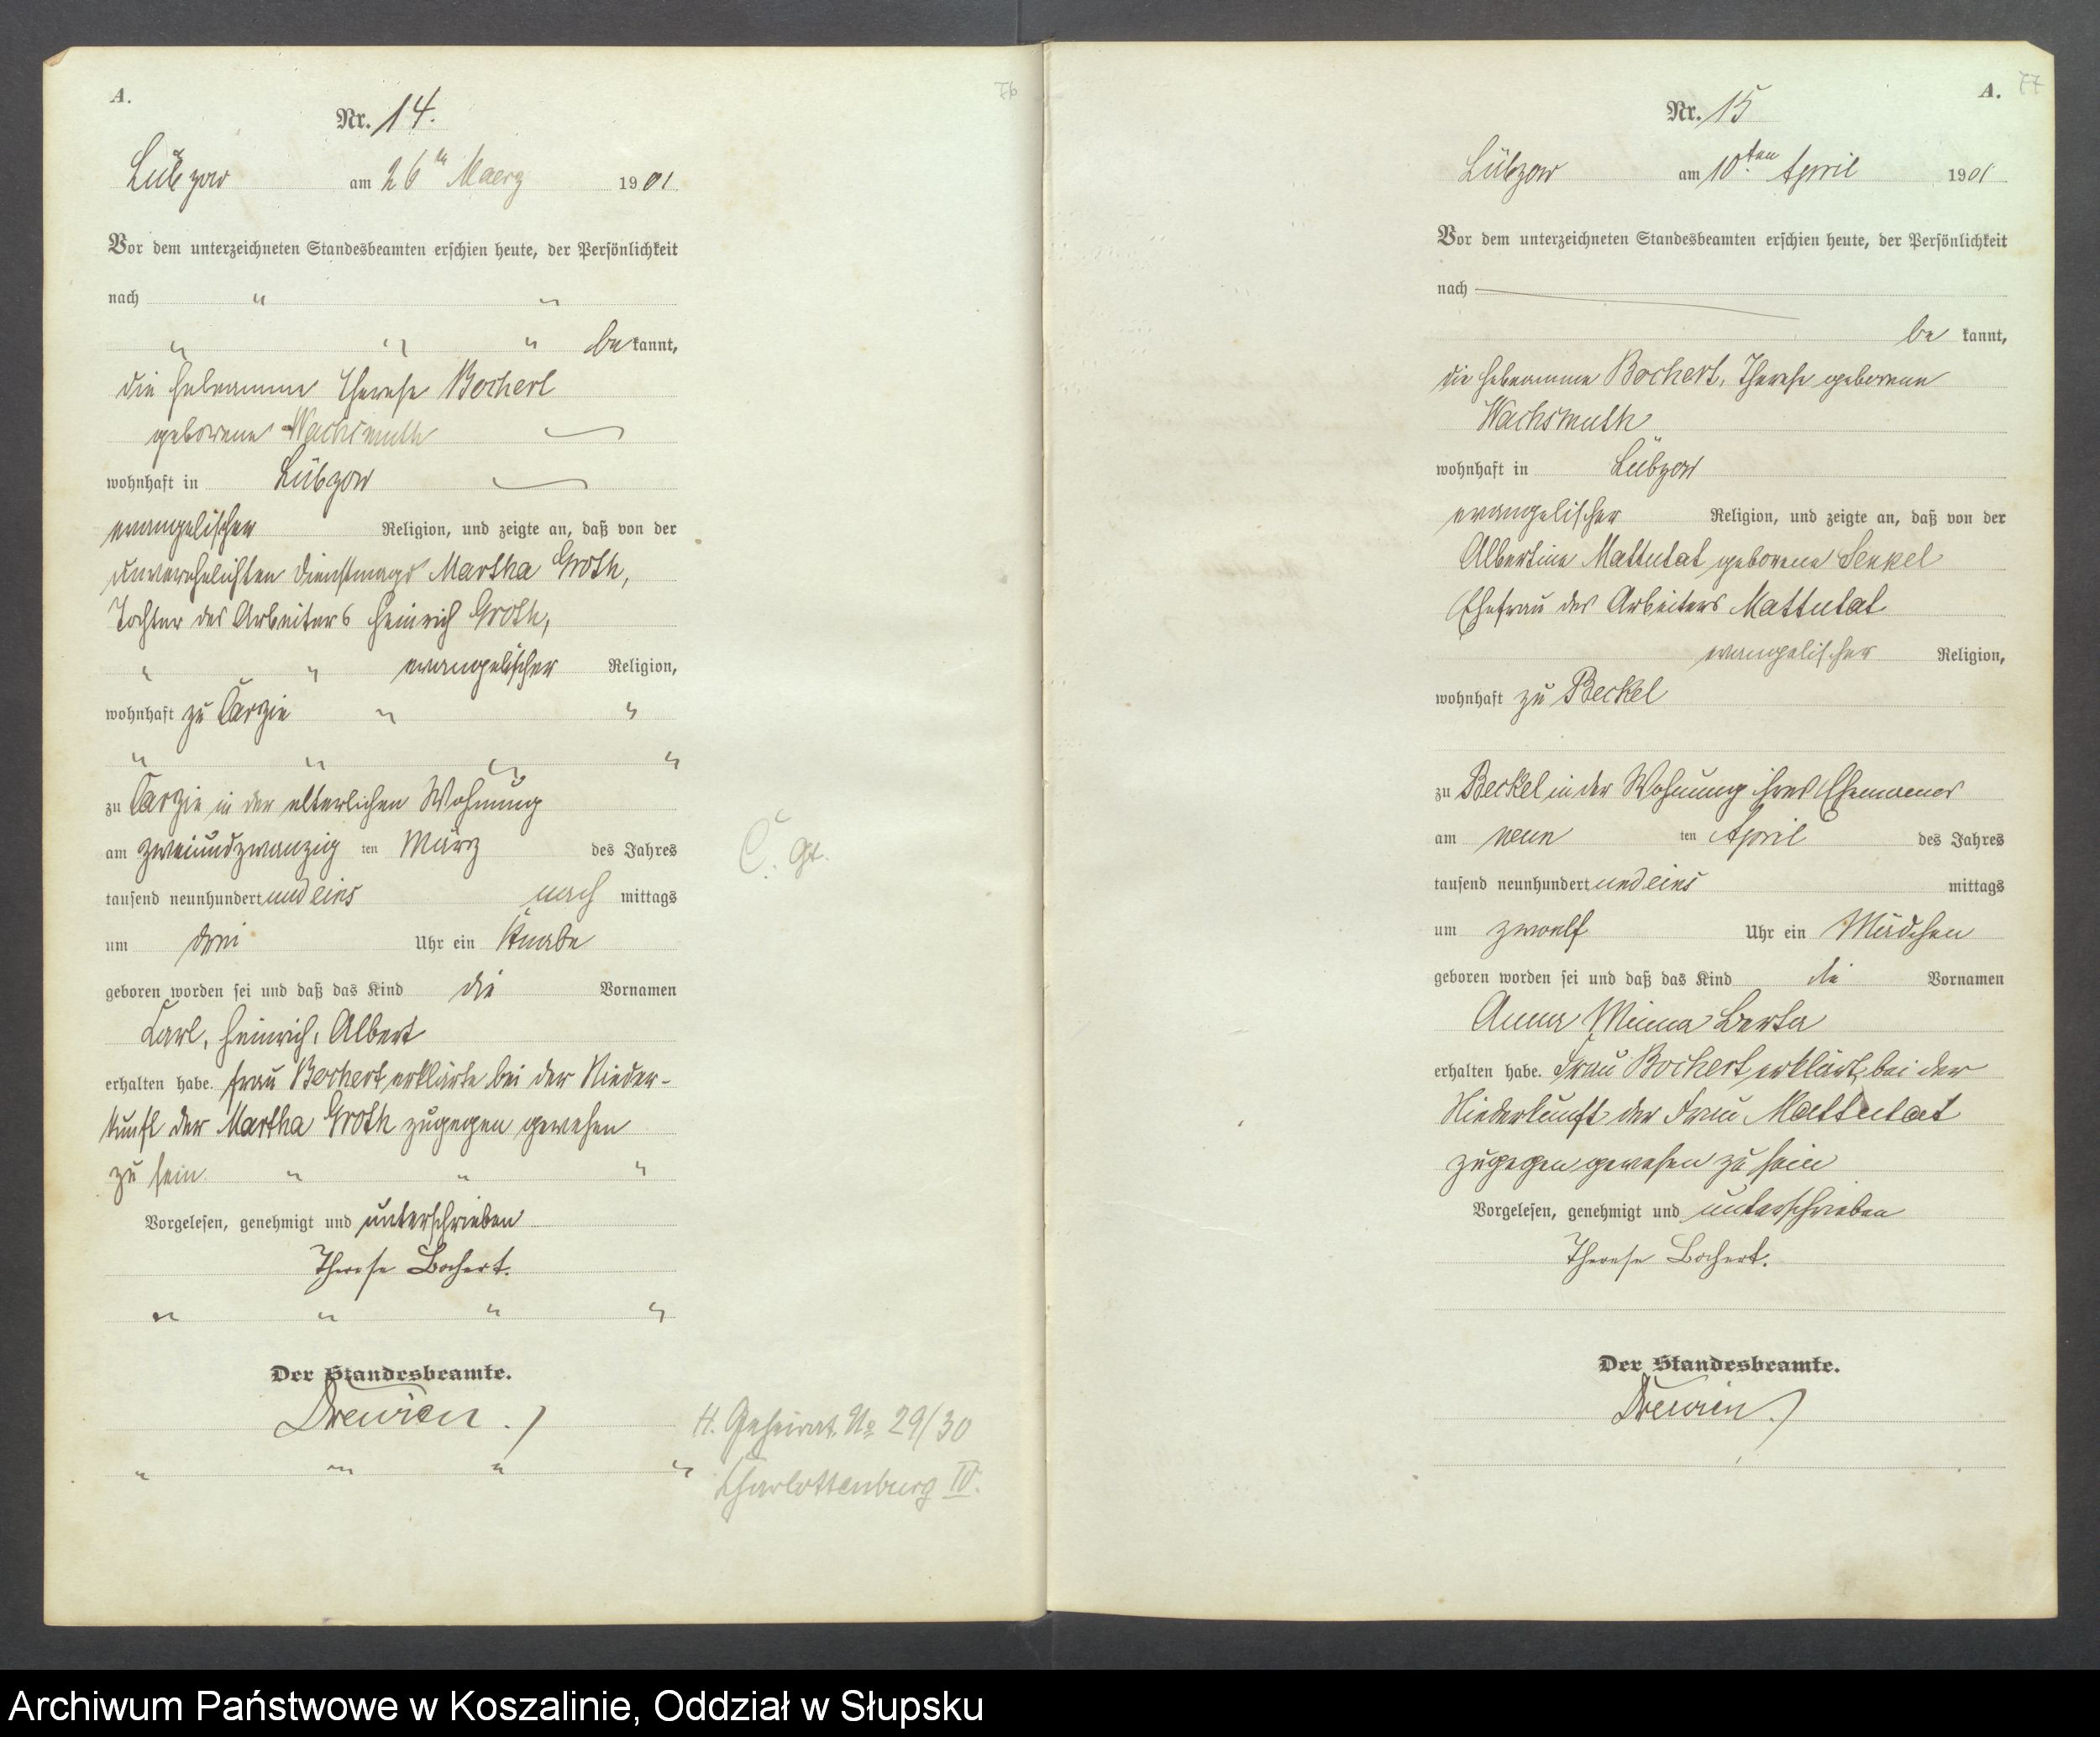 A.
76
Nr. 14.
Lübzow am 26ten Maerz 1901
Vor dem unterzeichneten Standesbeamten erschien heute, der Persönlichkeit
nach " "
" " " be kannt,
die Hebeamme Therese Bochert
geborene Wachsmuth
wohnhaft in Lübzow
evangelischer Religion, und zeigte an, daß von der
unverehelichten Dienstmagd Martha Groth,
Tochter des Arbeiters Heinrich Groth,
" " evangelischer Religion,
wohnhaft zu Carzin " "
" " " "
zu Carzin in der elterlichen Wohnung
am zweiundzwanzig ten März des Jahres
tausend neunhundert und eins nach mittags
um drei Uhr ein Knabe
geboren worden sei und daß das Kind die Vornamen
Carl, Heinrich, Albert
erhalten habe. Frau Bochert erklärte bei der Nieder-
kunft der Martha Groth zugegen gewesen
zu sein. " " "
Vorgelesen, genehmigt und unterschrieben
Therese Bochert.
" " " "
Der Standesbeamte.
Drewien.
" " " "
C. Gt.
H. Geheirat. No 29/30
Charlottenburg IV.
A. 77
Nr. 15
Lübzow am 10ten April 1901
Vor dem unterzeichneten Standesbeamten erschien heute, der Persönlichkeit
nach
be kannt,
die Hebeamme Bochert, Therese geborene
Wachsmuth
wohnhaft in Lübzow
evangelischer Religion, und zeigte an, daß von der
Albertine Mattutat geborene Senkel
Ehefrau des Arbeiters Mattutat
evangelischer Religion,
wohnhaft zu Beckel
zu Beckel in der Wohnung ihres Ehemannes
am neun ten April des Jahres
tausend neunhundert und eins mittags
um zwoelf Uhr ein Mädchen
geboren worden sei und daß das Kind die Vornamen
Anna Minna Berta
erhalten habe. Frau Bochert erklärt, bei der
Niederkunft der Frau Mattutat
zugegen gewesen zu sein
Vorgelesen, genehmigt und unterschrieben
Therese Bochert.
Der Standesbeamte.
Drewien.
Archiwum Państwowe w Koszalinie, Oddział w Słupsku